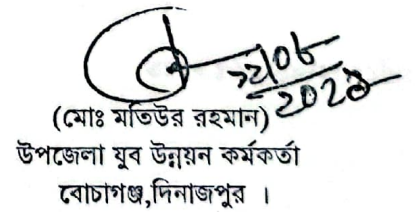 (মোঃ মতিউর রহমান)
উপজেলা যুব উন্নয়ন কর্মকর্তা
বোচাগঞ্জ,দিনাজপুর ।